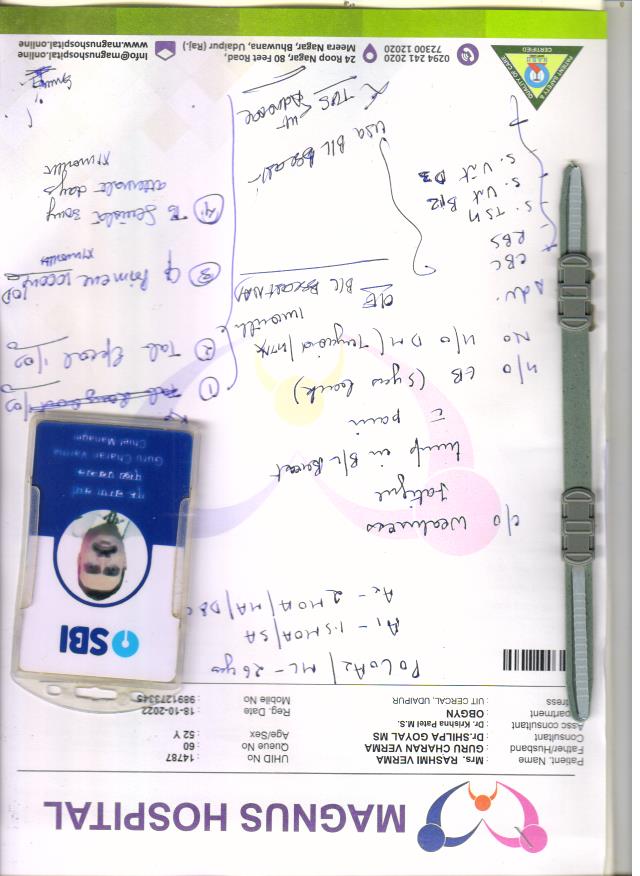 MAGNUS HOSPITAL
Patient. Name : Mrs. RASHMI VERMA
Father/Husband : GURU CHARAN VERMA
Consultant : Dr.SHILPA GOYAL MS
Assc consultant : Dr. Krishna Patel M.S.
partment : OBGYN
: UIT CERCAL, UDAIPUR
UHID No : 14787
Queue No : 60
Age/Sex : 52 Y
Reg. Date : 18-10-2022
Mobile No : 9891273345
P0L0A2 / ML - 26 yrs
A1 - 1.5 MOA / SA
A2 - 2 MOA / MA / D&C
SBI
गुरु चरण वर्मा
मुख्य प्रबंधक
Guru Charan Varma
Chief Manager
c/o Weakness
fatigue
lump in B/L Breast
c pain
H/O EB (5 yrs back)
NO H/O DM / Thyroid / HTN
Adv.
CBC
RBS
S. TSH
S. Vit B12
S. Vit D3
O/E
B/L Breast NAD
USG B/L Breast
TVS
Advice
Rx
① Tab
② Tab
③
④
alternate days
x 1 month
PATIENT SAFETY & QUALITY OF CARE
CERTIFIED
0294 241 2020
72300 12020
24 Roop Nagar, 80 Feet Road,
Meera Nagar, Bhuwana, Udaipur (Raj.)
info@magnushospital.online
www.magnushospital.online